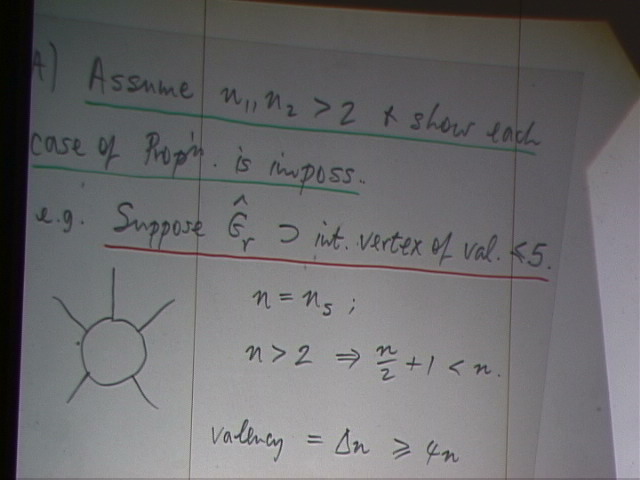 A) Assume n₁, n₂ > 2 & show each
case of Prop'n. is imposs.
e.g. Suppose Ĝᵣ ⊃ int. vertex of val. ≤ 5.
n = nₛ ;
n > 2 ⇒ n/2 + 1 < n.
valency = Δn ≥ 4n